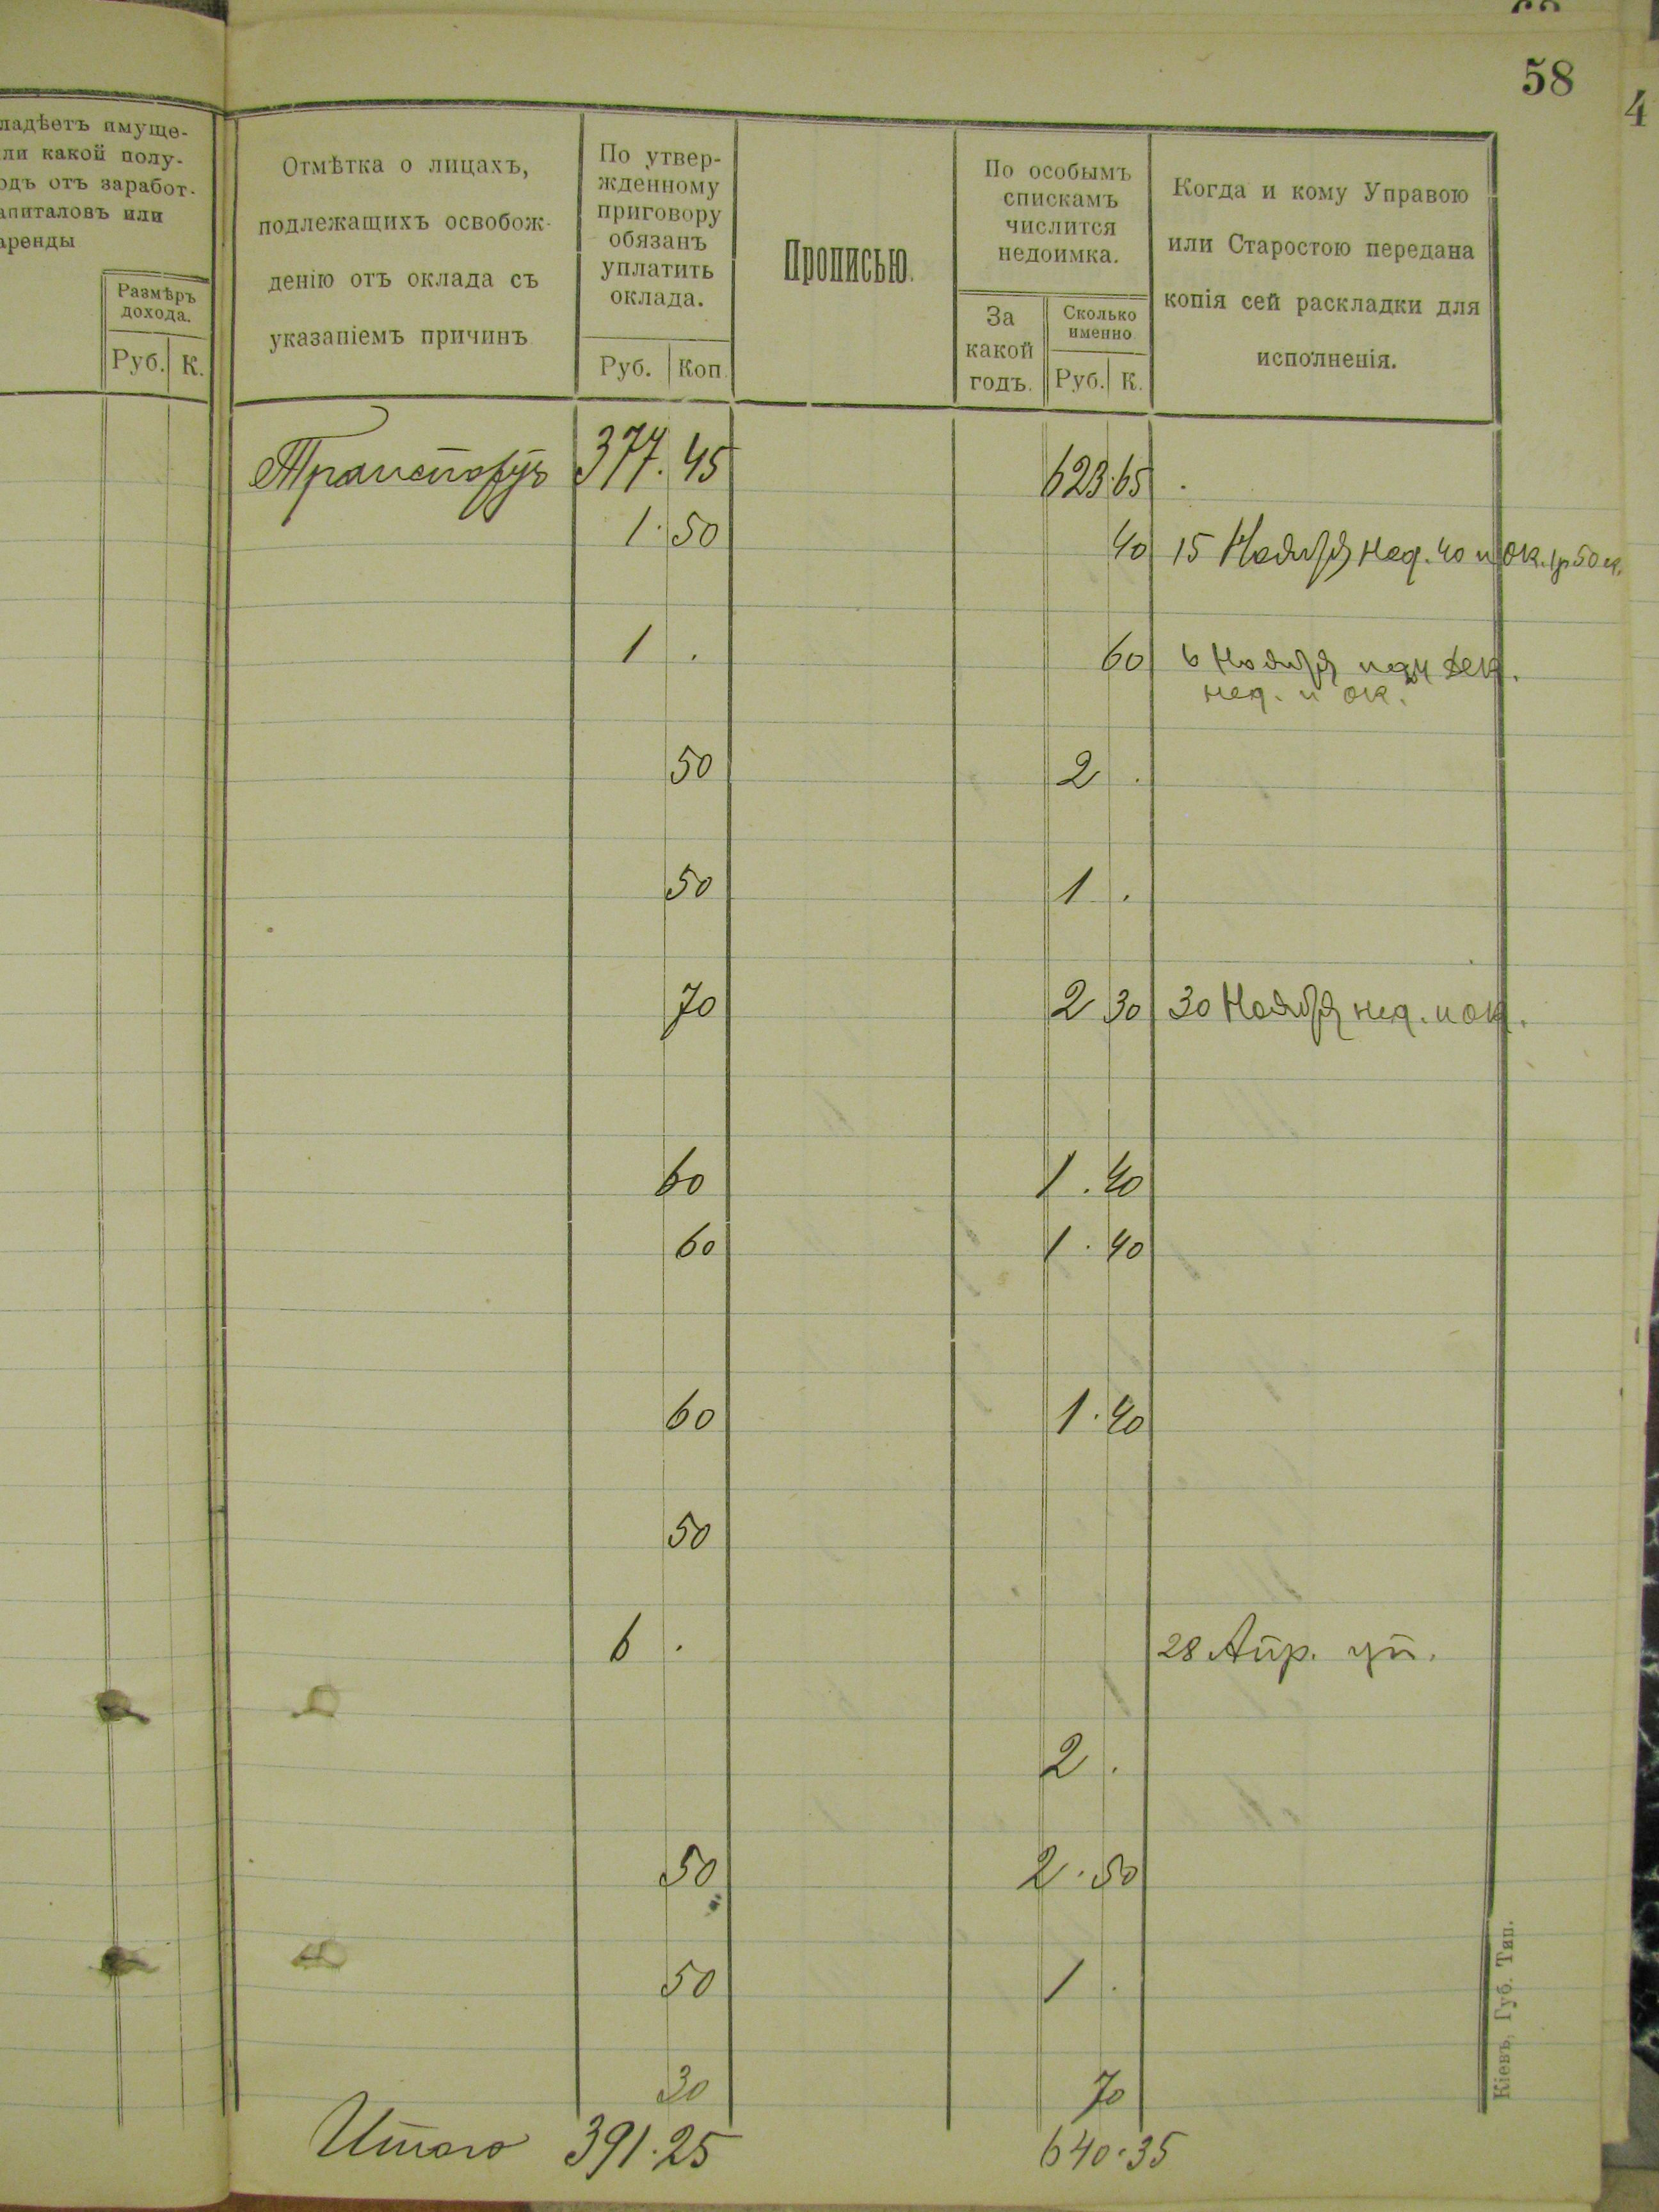 58
4
ладѣетъ имуще-
ли какой полу-
одъ отъ заработ-
апиталовъ или
аренды
Размѣръ
дохода.
Руб. К.
Отмѣтка о лицахъ,
подлежащихъ освобож-
денію отъ оклада съ
указаніемъ причинъ
По утвер-
жденному
приговору
обязанъ
уплатить
оклада.
Руб. Коп.
Прописью.
По особымъ
спискамъ
числится
недоимка.
За
какой
годъ.
Сколько
именно
Руб. К.
Когда и кому Управою
или Старостою передана
копія сей раскладки для
исполненія.
Транспортъ 377.45 623.65
1.50 40 15 Ноября нед. 40 и ок. 1р 50 к.
1 . 60 6 Ноября
нед. и ок.
50 2 .
50 1 .
70 2 30 30 Ноября нед. и ок.
60 1.40
60 1.40
60 1.40
50
6 . 28 Апр. уп.
2 .
50 2.50
50 1 .
30 70
Итого 391.25 640.35
Кіевъ, Губ. Тип.